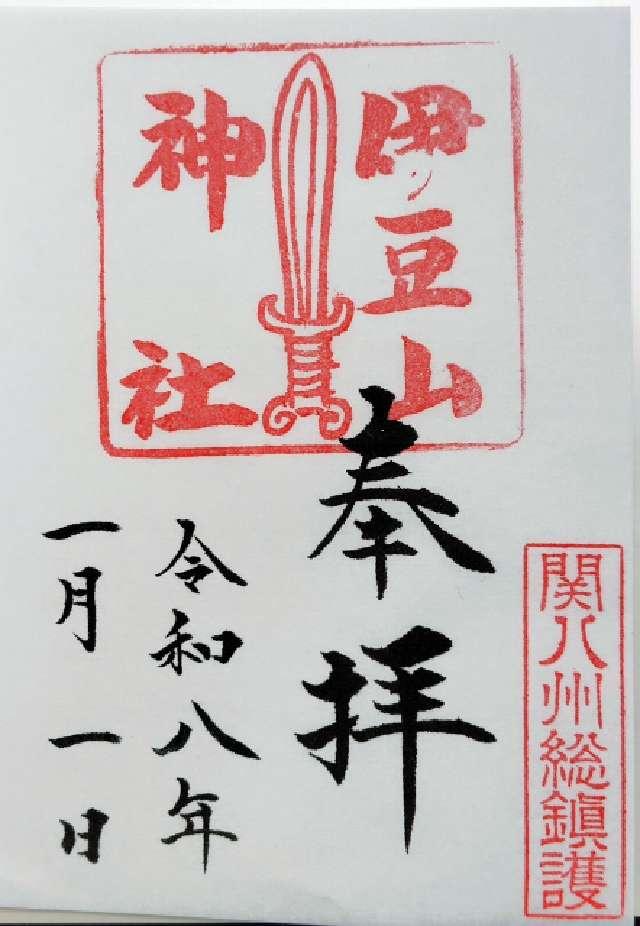 関八州総鎮護
伊豆山
神社
奉拝
令和八年
一月一日